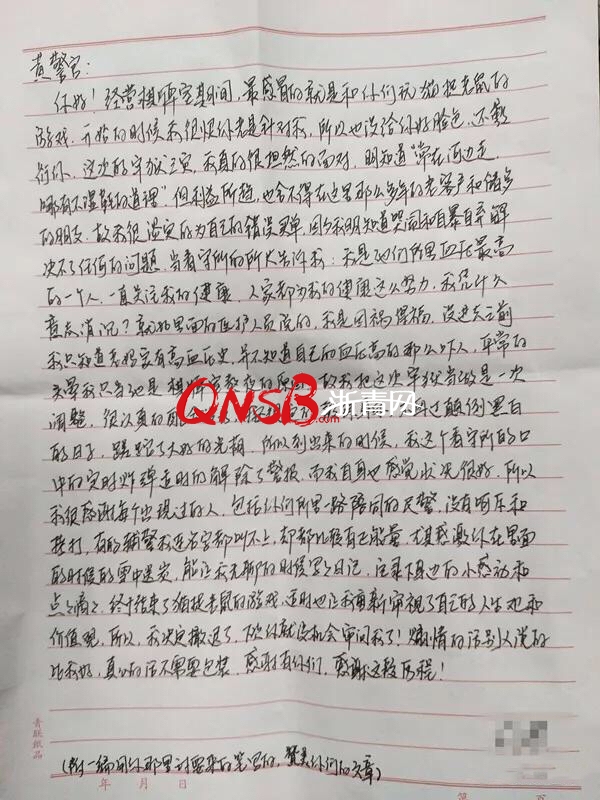 黄警官：
你好！经营棋牌室期间，最感冒的就是和你们玩猫抓老鼠的
游戏。开始的时候我很恨你老是针对我，所以也没给你好脸色，还敷
衍你，这次的牢狱之灾，我真的很坦然的面对，明知道"常在河边走，
哪有不湿鞋的道理"但利益所趋，也舍不得在这里那么多年的老客户和诸多
的朋友。故我很淡定的为自己的错误买单，因为我明知道哭闹和自暴自弃解
决不了任何的问题，当看守所的所长告诉我：我是他们所里血压最高
的一个人，一直关注我的健康，人家都为我的健康这么努力，我凭什么
意志消沉？就如里面的医护人员说的，我是因祸得福，没进去之前
我只知道老妈家有高血压史，并不知道自己的血压高的那么吓人，平常的
我只当她是棋牌室熬夜的原因，故我把这次牢狱当做是一次
调整，很认真的配合
QNSB浙青网
过颠倒黑白
的日子，蹉跎了大好的光阴，所以到出来的时候，我这个看守所的口
中的定时炸弹走时的解除了警报，而我自身也感觉状况很好，所以
我很感谢每个出现过的人，包括你们所里一路陪同的民警，没有喝斥和
挨打，有的辅警我连名字都叫不上，却都比较有正能量，尤其感激你在里面
的时候的雪中送炭，能让我无聊的时候写写日记，记录下身边的小感动和
点点滴滴，终于结束了猫抓老鼠的游戏，这时也让我重新审视了自己的人生观和
价值观，所以，我决定撤退了，以后你就没机会审问我了！煽情的话别人说的
比我好，真心的话不需要包装，感谢有你们，感谢这段历程！
(附一编用你那里讨要来的笔写的，赞美你们的文章)
青联纸品
年 月 日
第 页